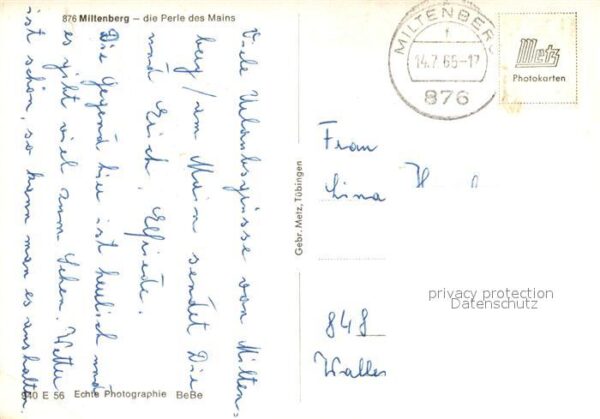 876 Miltenberg – die Perle des Mains
Viele Urlaubsgrüsse von Milten-
berg/am Main sendet Die
und Erich, Elfriede.
Die Gegend hier ist herrlich und
es gibt viel zum Sehen. Wetter
ist schön, so kann man es aushalten.
940 E 56 Echte Photographie BeBe
Gebr. Metz, Tübingen
MILTENBERG
f
14.7.65-17
876
Metz
Photokarten
Frau
Lina
privacy protection
Datenschutz
848